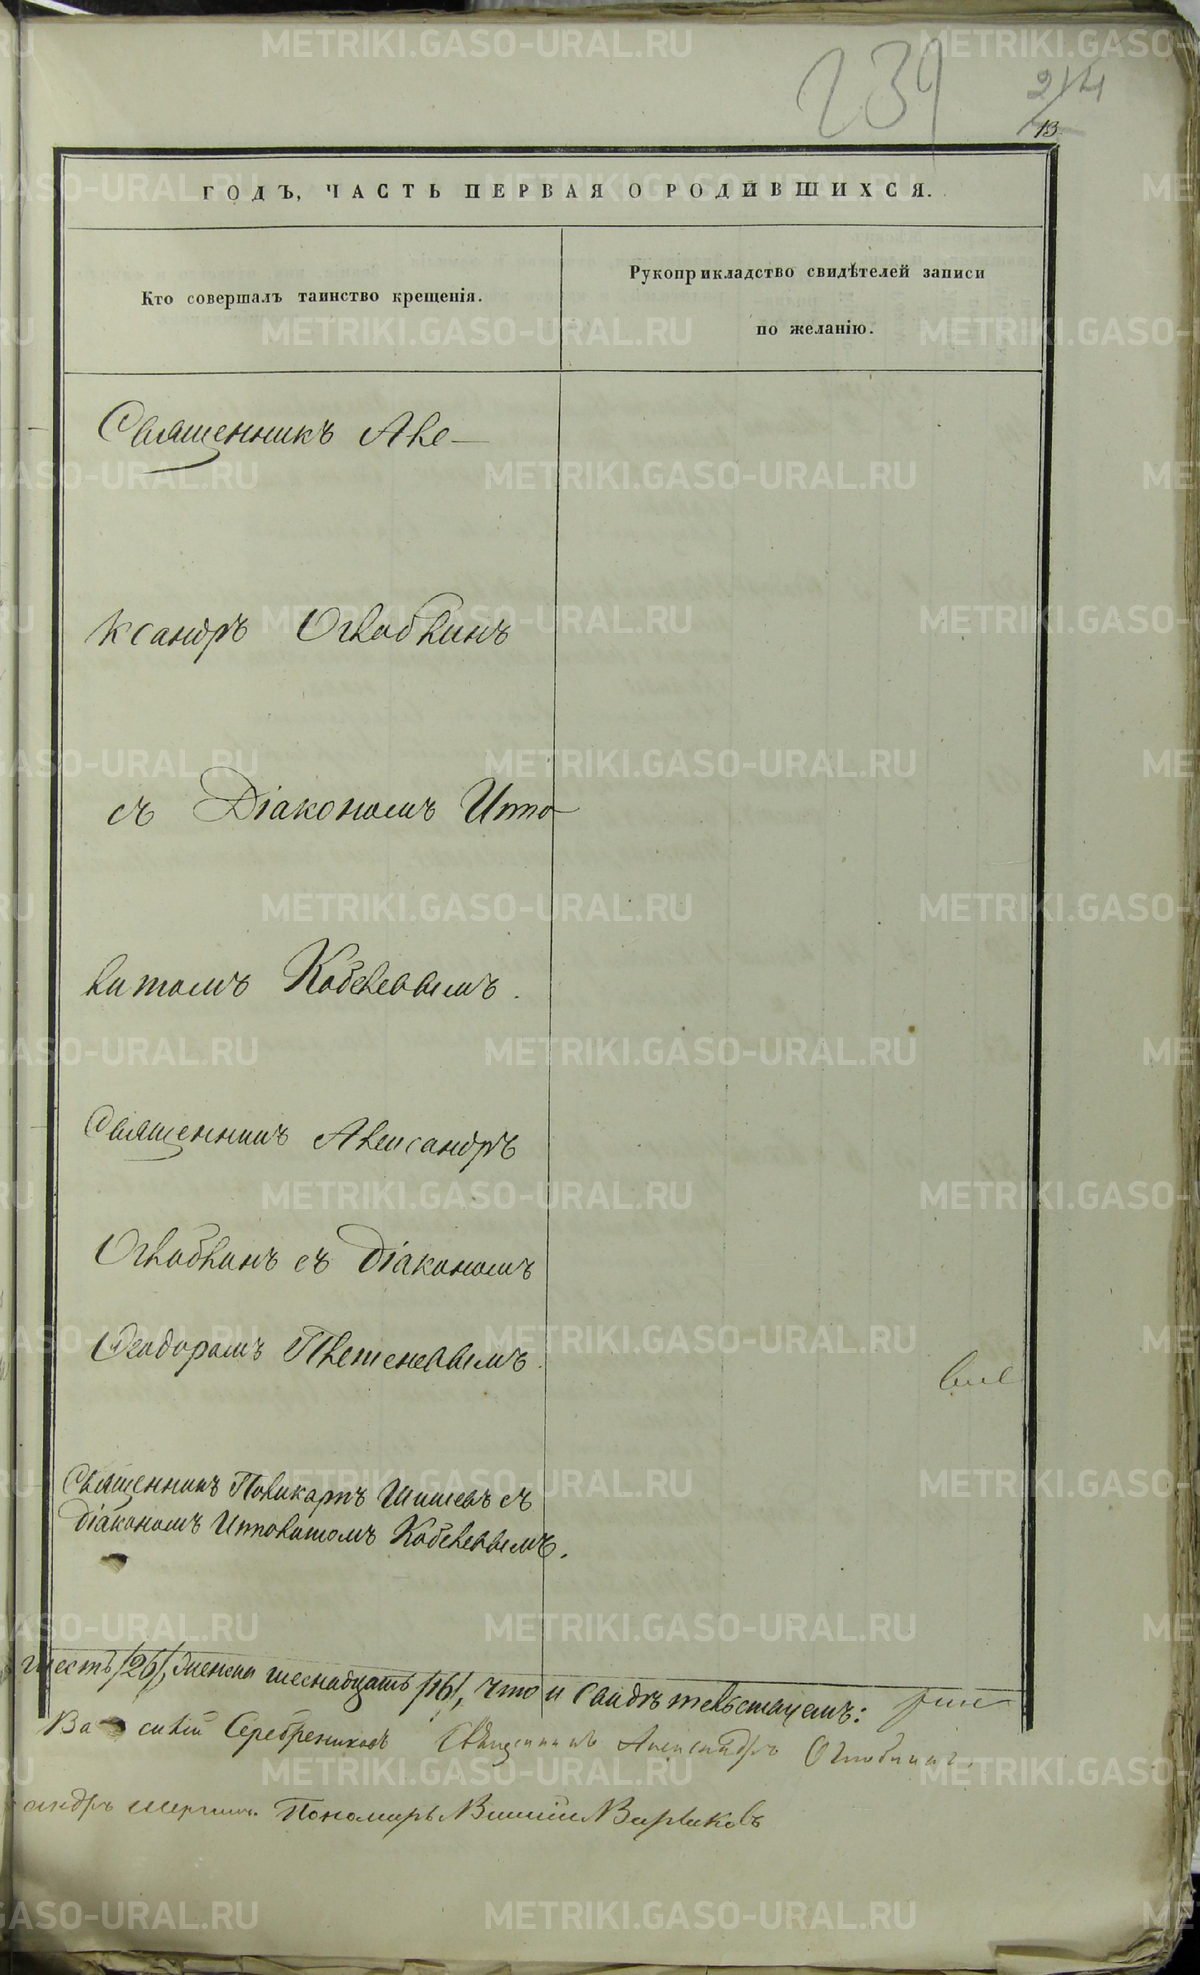 239
214
13
ГОДЪ, ЧАСТЬ ПЕРВАЯ О РОДИВШИХСЯ.
Кто совершалъ таинство крещенія.
Рукоприкладство свидѣтелей записи
по желанію.
Священникъ Але-
ксандръ Оглоблинъ
съ Діакономъ Иппо-
литомъ Кобелевымъ.
Священникъ Александръ
Оглоблинъ съ Діакономъ
Ѳеодоромъ Плотневымъ
Священникъ Поликарпъ Шишевъ съ
Діакономъ Ипполитомъ Кобелевымъ.
шесть /26/, женска шеснадцать /16/, что и свидѣтельствуемъ:
Василій Серебрениковъ Священникъ Александръ Оглоблинъ.
Пономарь Василій
METRIKI.GASO-URAL.RU